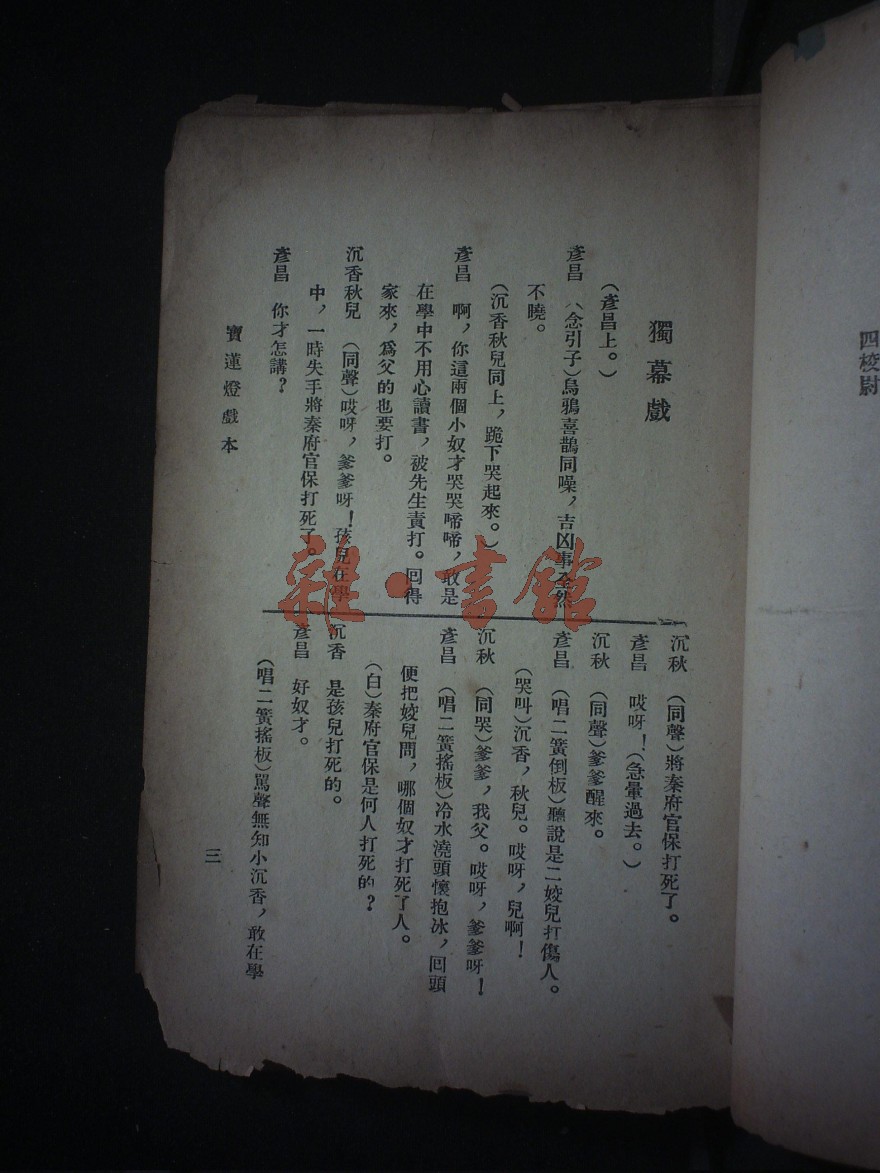 四校尉
獨幕戲
(彥昌上。)
彥昌 (念引子)烏鴉喜鵲同噪,吉凶事全然
不曉。
(沉香秋兒同上,跪下哭起來。)
彥昌 啊,你這兩個小奴才哭哭啼啼,敢是
在學中不用心讀書,被先生責打。回得
家來,爲父的也要打。
沉香秋兒 (同聲)哎呀,爹爹呀!孩兒在學
中,一時失手將秦府官保打死了。
彥昌 你才怎講?
沉秋 (同聲)將秦府官保打死了。
彥昌 哎呀!(急暈過去。)
沉秋 (同聲)爹爹醒來。
彥昌 (唱二簧倒板)聽說是二姣兒打傷人。
(哭叫)沉香,秋兒。哎呀,兒啊!
沉秋 (同哭)爹爹,我父。哎呀,爹爹呀!
彥昌 (唱二簧搖板)冷水澆頭懷抱冰,回頭
便把姣兒問,哪個奴才打死了人。
(白)秦府官保是何人打死的?
沉香 是孩兒打死的。
彥昌 好奴才。
(唱二簧搖板)駡聲無知小沉香,敢在學
寶蓮燈戲本
三
雜·書館